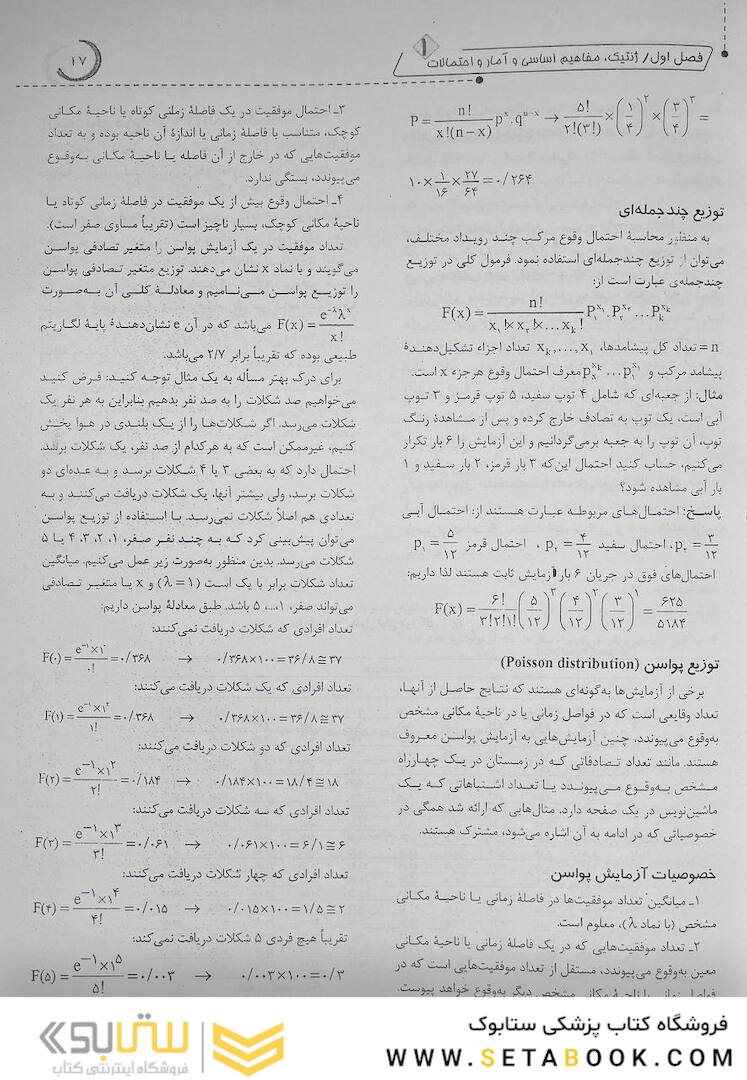 فصل اول/ ژنتیک، مفاهیم اساسی و آمار و احتمالات
۱
۱۷
P = n! / x!(n−x) pˣ.qⁿ⁻ˣ → ۵! / ۲!(۳!) × (۱/۴)² × (۳/۴)³ =
۱۰×۱/۱۶×۲۷/۶۴=۰/۲۶۴
توزیع چندجمله‌ای
به منظور محاسبهٔ احتمال وقوع مرکب چند رویداد مختلف،
می‌توان از توزیع چندجمله‌ای استفاده نمود. فرمول کلی در توزیع
چندجمله‌ی عبارت است از:
F(x) = n! / x₁!×x₂!×...x_k! P₁^x₁.P₂^x₂...P_k^x_k
n = تعداد کل پیشامدها، x_k,...,x₁ تعداد اجزاء تشکیل‌دهندهٔ
پیشامد مرکب و p_x^xk ... p₁^x₁ معرف احتمال وقوع هرجزء x است.
مثال: از جعبه‌ای که شامل ۴ توپ سفید، ۵ توپ قرمز و ۳ توپ
آبی است، یک توپ به تصادف خارج کرده و پس از مشاهدهٔ رنگ
توپ، آن توپ را به جعبه برمی‌گردانیم و این آزمایش را ۶ بار تکرار
می‌کنیم، حساب کنید احتمال این‌که ۳ بار قرمز، ۲ بار سفید و ۱
بار آبی مشاهده شود؟
پاسخ: احتمال‌های مربوطه عبارت هستند از: احتمال آبی
p₃ = ۳/۱۲، احتمال سفید p₂ = ۴/۱۲ ، احتمال قرمز p₁ = ۵/۱۲
احتمال‌های فوق در جریان ۶ بار آزمایش ثابت هستند لذا داریم:
F(x) = ۶! / ۳!۲!۱! (۵/۱۲)³ (۴/۱۲)² (۳/۱۲)¹ = ۶۲۵/۵۱۸۴
توزیع پواسن (Poisson distribution)
برخی از آزمایش‌ها به‌گونه‌ای هستند که نتایج حاصل از آنها،
تعداد وقایعی است که در فواصل زمانی یا در ناحیهٔ مکانی مشخص
به‌وقوع می‌پیوندد، چنین آزمایش‌هایی به آزمایش پواسن معروف
هستند. مانند تعداد تصادفاتی که در زمستان در یک چهارراه
مشخص به‌وقوع می‌پیوندد یا تعداد اشتباهاتی که یک
ماشین‌نویس در یک صفحه دارد. مثال‌هایی که ارائه شد همگی در
خصوصیاتی که در ادامه به آن اشاره می‌شود، مشترک هستند.
خصوصیات آزمایش پواسن
۱ـ میانگین تعداد موفقیت‌ها در فاصلهٔ زمانی یا ناحیهٔ مکانی
مشخص (با نماد λ)، معلوم است.
۲ـ تعداد موفقیت‌هایی که در یک فاصلهٔ زمانی یا ناحیهٔ مکانی
معین به‌وقوع می‌پیوندد، مستقل از تعداد موفقیت‌هایی است که در
فواصل زمانی یا ناحیهٔ مکانی مشخص دیگر به‌وقوع خواهد پیوست.
۳ـ احتمال موفقیت در یک فاصلهٔ زمانی کوتاه یا ناحیهٔ مکانی
کوچک، متناسب با فاصلهٔ زمانی یا اندازهٔ آن ناحیه بوده و به تعداد
موفقیت‌هایی که در خارج از آن فاصله یا ناحیهٔ مکانی به‌وقوع
می‌پیوندد، بستگی ندارد.
۴ـ احتمال وقوع بیش از یک موفقیت در فاصلهٔ زمانی کوتاه یا
ناحیهٔ مکانی کوچک، بسیار ناچیز است (تقریباً مساوی صفر است).
تعداد موفقیت در یک آزمایش پواسن را متغیر تصادفی پواسن
می‌گویند و با نماد x نشان می‌دهند. توزیع متغیر تصادفی پواسن
را توزیع پواسن می‌نامیم و معادلهٔ کلی آن به‌صورت
F(x) = e^−λ λ^x / x! می‌باشد که در آن e نشان‌دهندهٔ پایهٔ لگاریتم
طبیعی بوده که تقریباً برابر ۲/۷ می‌باشد.
برای درک بهتر مسأله به یک مثال توجه کنید: فرض کنید
می‌خواهیم صد شکلات را به صد نفر بدهیم بنابراین به هر نفر یک
شکلات می‌رسد. اگر شکلات‌ها را از یک بلندی در هوا پخش
کنیم، غیرممکن است که به هرکدام از صد نفر، یک شکلات برسد.
احتمال دارد که به بعضی ۳ یا ۴ شکلات برسد و به عده‌ای دو
شکلات برسد، ولی بیشتر آنها، یک شکلات دریافت می‌کنند و به
تعدادی هم اصلاً شکلات نمی‌رسد. با استفاده از توزیع پواسن
می‌توان پیش‌بینی کرد که به چند نفر صفر، ۱، ۲، ۳، ۴ یا ۵
شکلات می‌رسد. بدین منظور به‌صورت زیر عمل می‌کنیم. میانگین
تعداد شکلات برابر با یک است (λ=۱) و x یا متغیر تصادفی
می‌تواند صفر، ۱،...، ۵ باشد. طبق معادلهٔ پواسن داریم:
تعداد افرادی که شکلات دریافت نمی‌کنند:
F(۰) = e⁻¹×۱⁰ / ۰! = ۰/۳۶۸ → ۰/۳۶۸×۱۰۰=۳۶/۸≅۳۷
تعداد افرادی که یک شکلات دریافت می‌کنند:
F(۱) = e⁻¹×۱² / ۱! = ۰/۳۶۸ → ۰/۳۶۸×۱۰۰=۳۶/۸≅۳۷
تعداد افرادی که دو شکلات دریافت می‌کنند:
F(۲) = e⁻¹×۱² / ۲! = ۰/۱۸۴ → ۰/۱۸۴×۱۰۰=۱۸/۴≅۱۸
تعداد افرادی که سه شکلات دریافت می‌کنند:
F(۳) = e⁻¹×۱³ / ۳! = ۰/۰۶۱ → ۰/۰۶۱×۱۰۰=۶/۱≅۶
تعداد افرادی که چهار شکلات دریافت می‌کنند:
F(۴) = e⁻¹×۱⁴ / ۴! = ۰/۰۱۵ → ۰/۰۱۵×۱۰۰=۱/۵≅۲
تقریباً هیچ فردی ۵ شکلات دریافت نمی‌کند:
F(۵) = e⁻¹×۱⁵ / ۵! = ۰/۰۰۳ → ۰/۰۰۳×۱۰۰=۰/۳
فروشگاه کتاب پزشکی ستابوک
WWW.SETABOOK.COM
ستابوک
فروشگاه اینترنتی کتاب